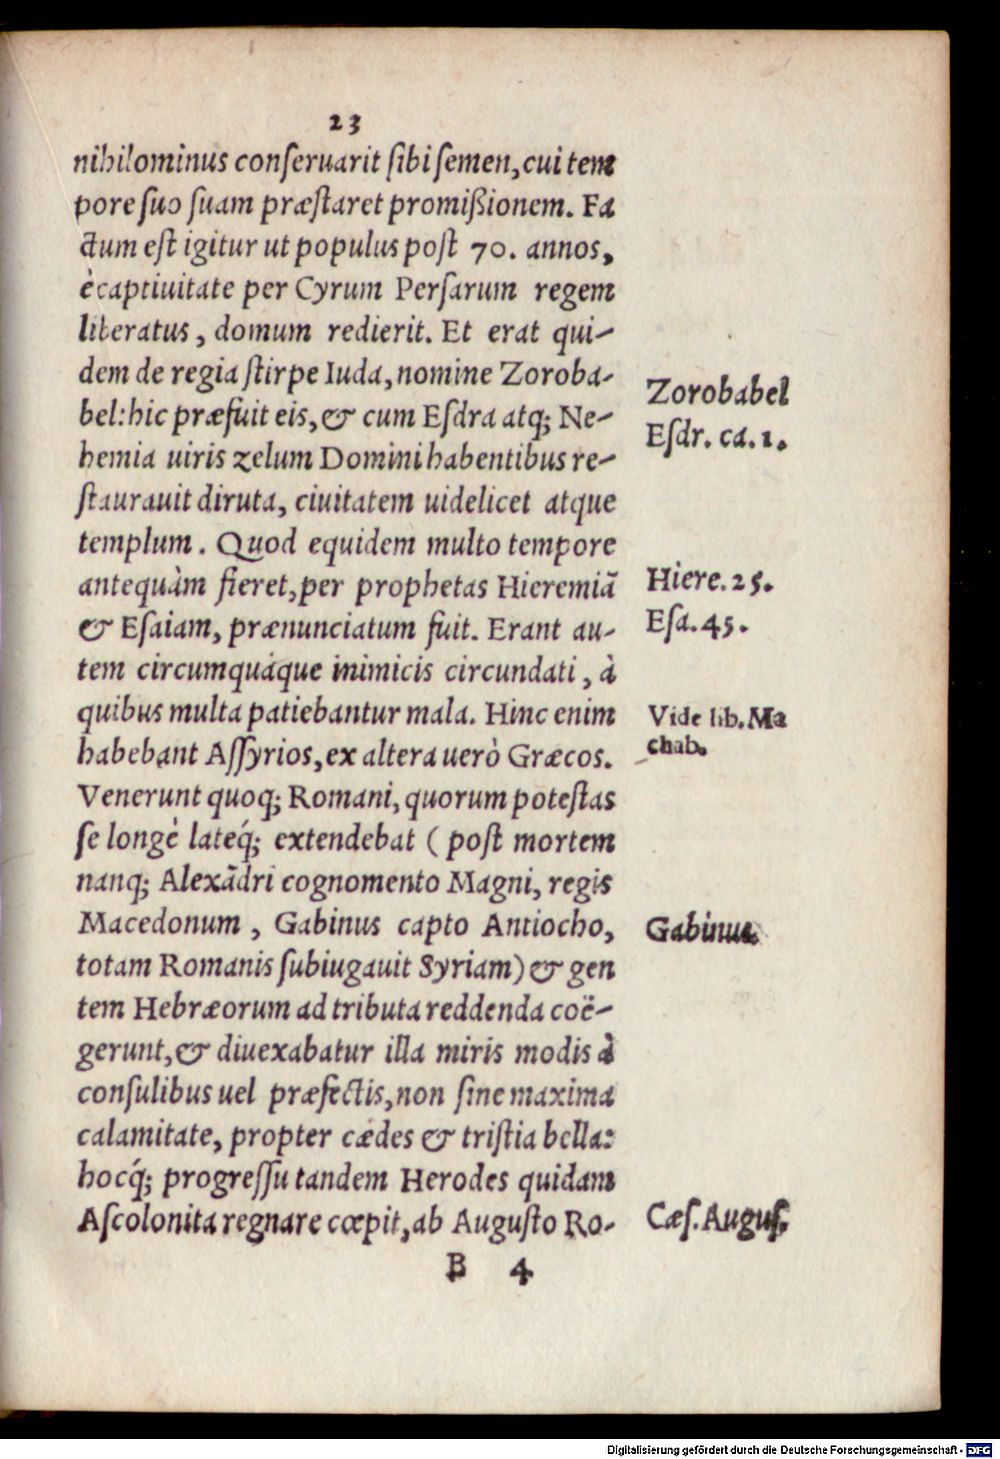 23
nihilominus conſeruarit ſibi ſemen, cui tem
pore ſuo ſuam præſtaret promißionem. Fa
ctum eſt igitur ut populus poſt 70. annos,
è captiuitate per Cyrum Perſarum regem
liberatus, domum redierit. Et erat qui-
dem de regia ſtirpe Iuda, nomine Zoroba-
bel: hic præfuit eis, & cum Eſdra atq; Ne-
hemia uiris zelum Domini habentibus re-
ſtaurauit diruta, ciuitatem uidelicet atque
templum. Quod equidem multo tempore
antequàm fieret, per prophetas Hieremiã
& Eſaiam, prænunciatum fuit. Erant au-
tem circumquáque inimicis circundati, à
quibus multa patiebantur mala. Hinc enim
habebant Aſſyrios, ex altera uerò Græcos.
Venerunt quoq; Romani, quorum poteſtas
ſe longè lateq́; extendebat ( poſt mortem
nanq; Alexãdri cognomento Magni, regis
Macedonum, Gabinus capto Antiocho,
totam Romanis ſubiugauit Syriam) & gen
tem Hebræorum ad tributa reddenda coë-
gerunt, & diuexabatur illa miris modis à
conſulibus uel præfectis, non ſine maxima
calamitate, propter cædes & triſtia bella:
hocq́; progreſſu tandem Herodes quidam
Aſcolonita regnare cœpit, ab Auguſto Ro-
B 4
Zorobabel
Eſdr. ca. 1.
Hiere. 25.
Eſa. 45.
Vide lib. Ma
chab.
Gabinus.
Cæſ. Auguſ.
Digitalisierung gefördert durch die Deutsche Forschungsgemeinschaft - DFG